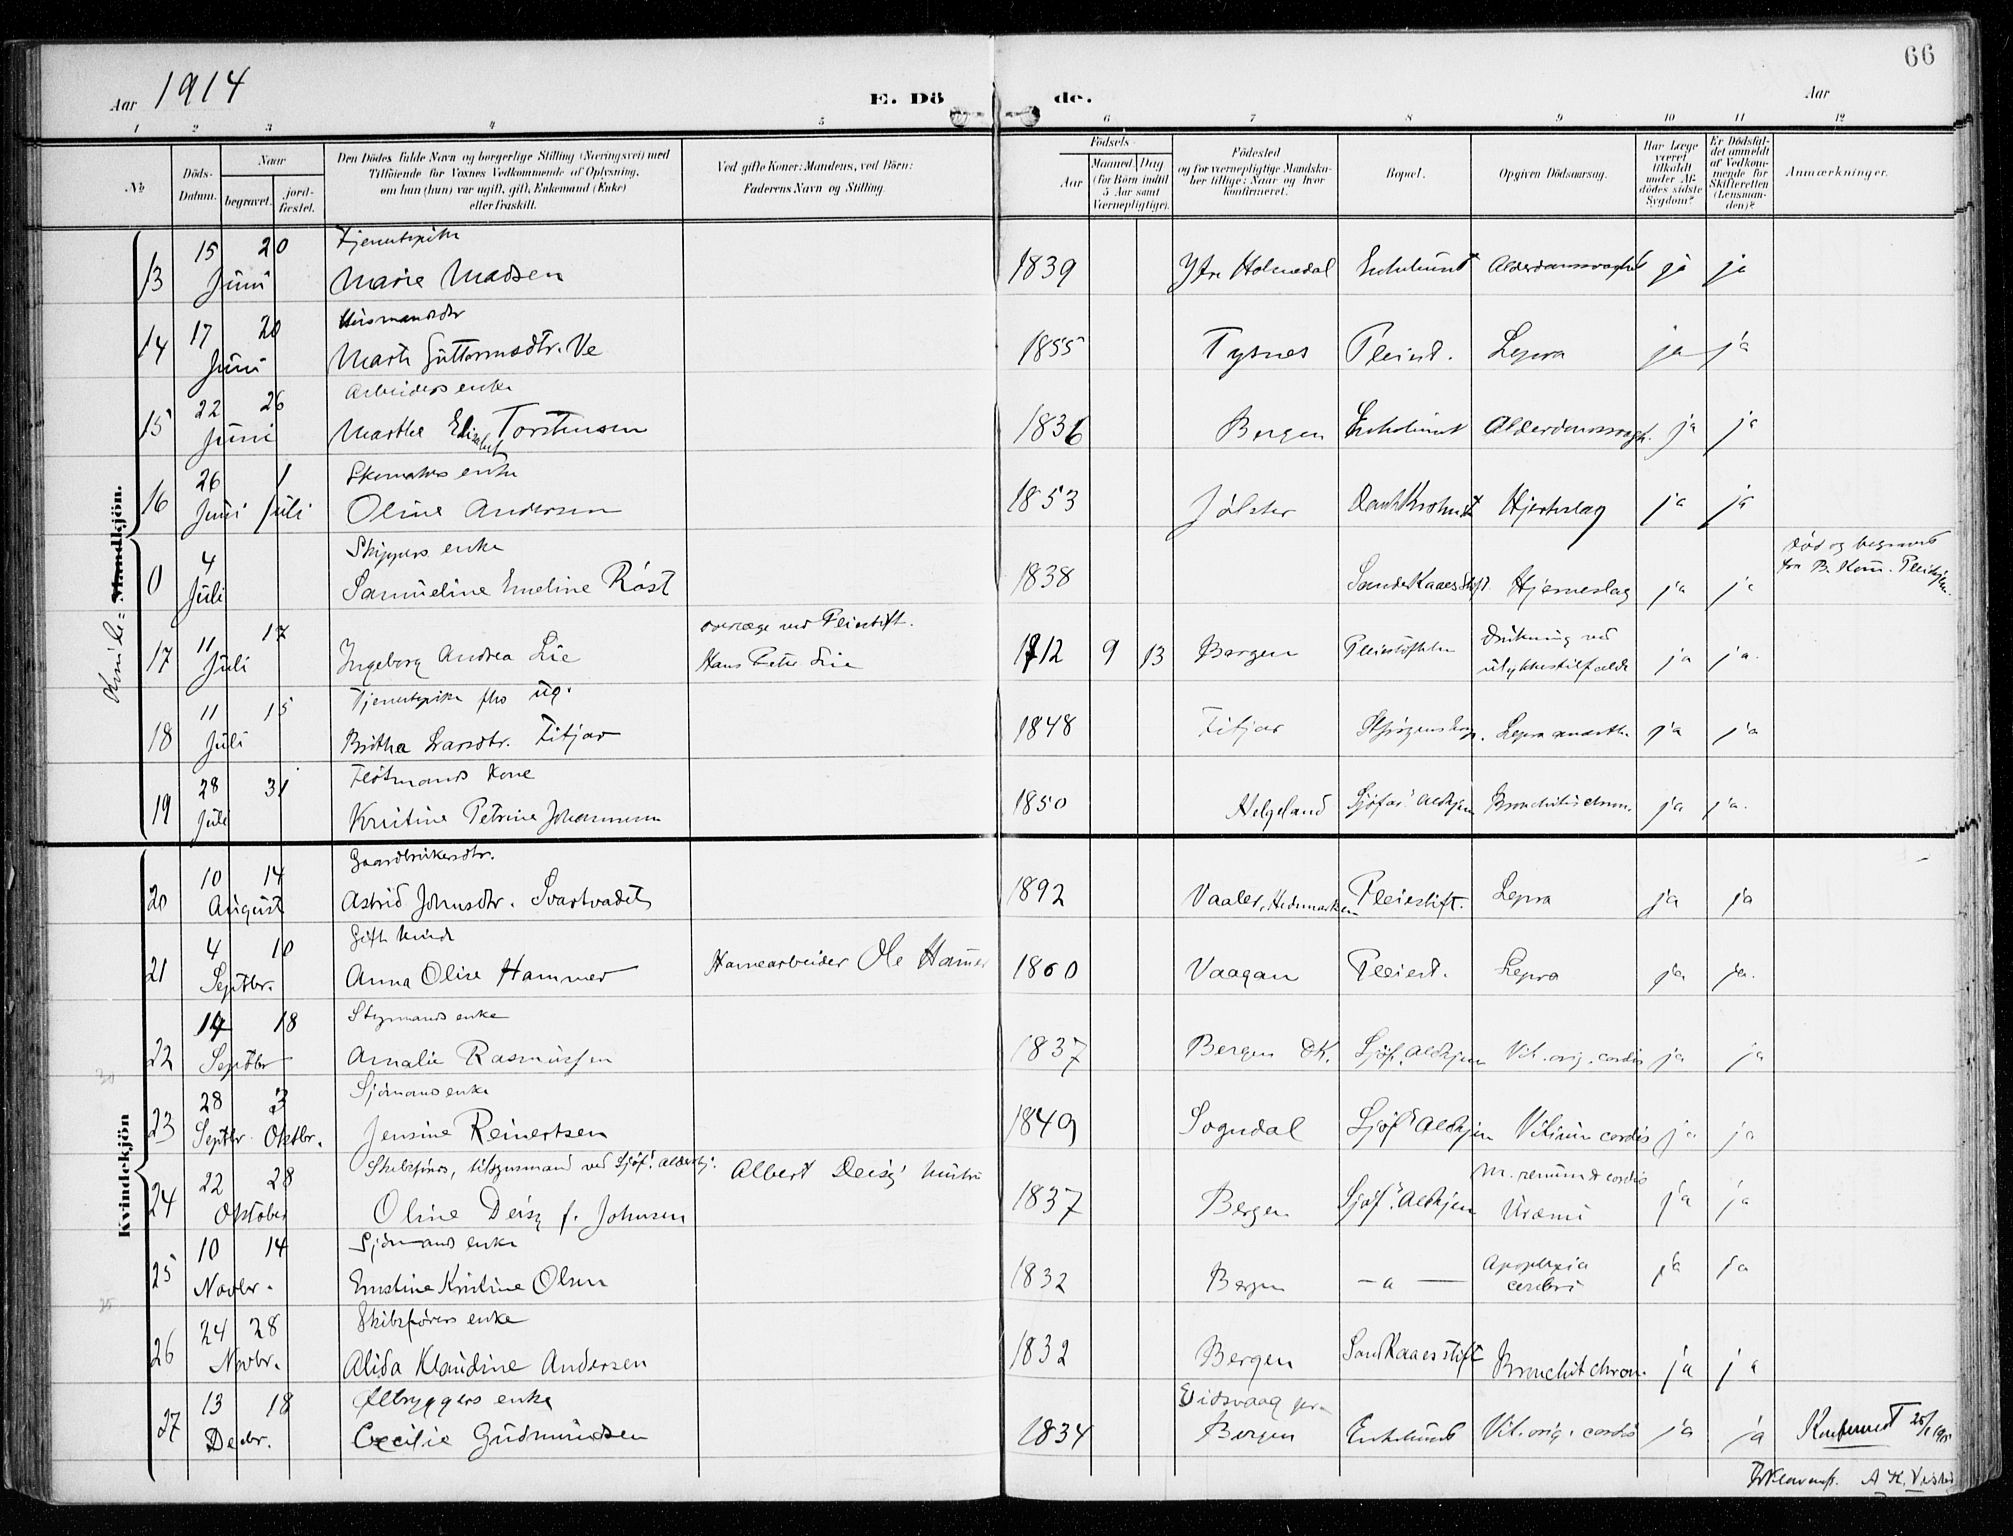 66
Aar 1914
E. Dö de.
Aar
1 2 3 4 5 6 7 8 9 10 11 12
No
Döds-Datum.
Naar
begravet.
jord-fæstet.
Den Dödes fulde Navn og borgerlige Stilling (Næringsvei) med
Tilföiende for Voxnes Vedkommende af Oplysning,
om han (hun) var ugift, gift, Enkemand (Enke)
eller fraskilt.
Ved gifte Koner: Mandens, ved Börn:
Faderens Navn og Stilling.
Födsels-
Aar
Maaned Dag
(for Börn indtil
5 Aar samt
Værnepligtige).
Födested
og for værnepligtige Mandska-
ber tillige: Naar og hvor
konfirmeret.
Bopæl.
Opgiven Dödsaarsag.
Har Læge
været
tilkaldt
under Af-
dödes sidste
Sygdom?
Er Dödsfal-
det anmeldt
af Vedkom-
mende for
Skifteretten
(Lensman-
den)?
Anmærkninger.
Kvinde: Mandkjön.
13 15 Juni 20 Tjenestepike
Marie Madsen 1839 Ytre Holmedal Enkehuset ja ja
14 17 Juni 20 Husmandsdtr
Marta Guttormsdtr. Ve 1855 Tysnes Pleiest. Lepra ja ja
15 22 Juni 26 Arbeiders enke
Martha Elisabet Torstensen 1836 Bergen Enkehuset ja ja
16 26 Juni 1 Juli Skomakers enke
Oline Andersen 1853 Jölster Hjerteslag ja ja
0 4 Juli Skippers enke
Samueline Emeline Röst 1838 Hjerneslag ja ja död og begravet
fra B. Kom. Pleiehjem.
17 11 Juli 17 overlæge ved Pleiestift.
Ingeborg Andrea Lie Hans Peter Lie 1912 9 13 Bergen Pleiestiftelsen Drukning ved
ulykkestilfælde ja ja.
18 11 Juli 15 Tjenestepike ug.
Britha Larsdtr. Fitjar 1848 Fitjar Lepra ja ja
19 28 Juli 31 Flötmands Kone
Kristine Petrine Johannesen 1850 Helgeland Sjöfar. Aldhjem Bronchitis chron. ja ja.
Kvindekjön
20 10 August 14 Gaardbrukersdtr.
Astrid Johnsdtr. Svartvadet 1892 Vaaler, Hedemarken Pleiestift. Lepra ja ja
21 4 Septbr. 10 Gift kvinde
Anna Olise Hammer Havnearbeider Ole Hammer 1860 Vaagan Pleiest. Lepra ja ja.
22 14 Septbr 18 Styrmands enke
Amalie Rasmussen 1837 Bergen DK. Sjöf. Aldhjem Vit. org. cordis ja ja
23 28 Septbr 3 Oktbr. Sjömands enke
Jensine Reinertsen 1849 Sogndal Sjöf. Aldhjem Vitium cordis ja ja
24 22 Oktober 28
Oline Deisz f. Johnsen Albert Deisz 1837 Bergen Sjöf. Aldhjem M. renum & cordis
Uræmi ja ja
25 10 Novbr. 14 Sjömands enke
Ernstine Kristine Olsen 1832 Bergen — a — Apoplexia
cerebri ja ja
26 24 Novbr. 28 Skibsförers enke
Alida Klaudine Andersen 1832 Bergen Sand Kaaes stift Bronchit chron. ja ja
27 13 Decbr. 18 Ölbryggers enke
Cecilie Gudmundsen 1834 Eidsvaag
Bergen Enkehuset Vit. org. cordis ja ja